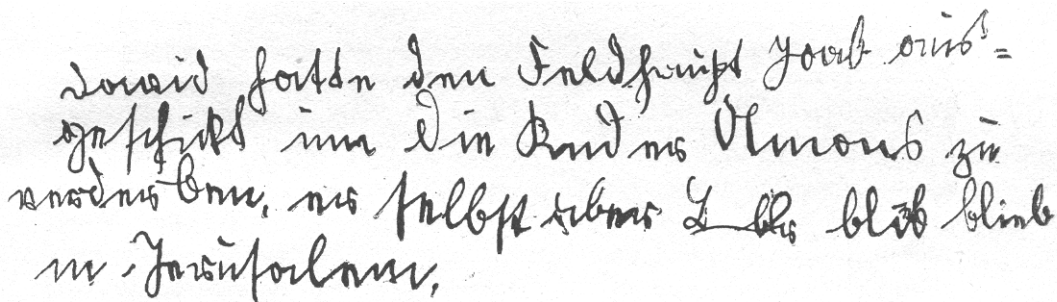 David hatte den Feldhaupt Joab aus=
geschickt um die Kinder Amons zu
verderben, er selbst aber blieb
in Jerusalem.